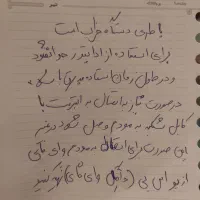 باطری دستگاه خراب است
برای استفاده از آداپتور جدا نشود
و در طول زمان استفاده به برق باشد
در صورت نیاز به اتصال به اینترنت با
کابل شبکه به مودم وصل شود در غیر
این صورت برای اتصال به مودم وای فای
از یو اس بی (دانگل وای فای) کنید